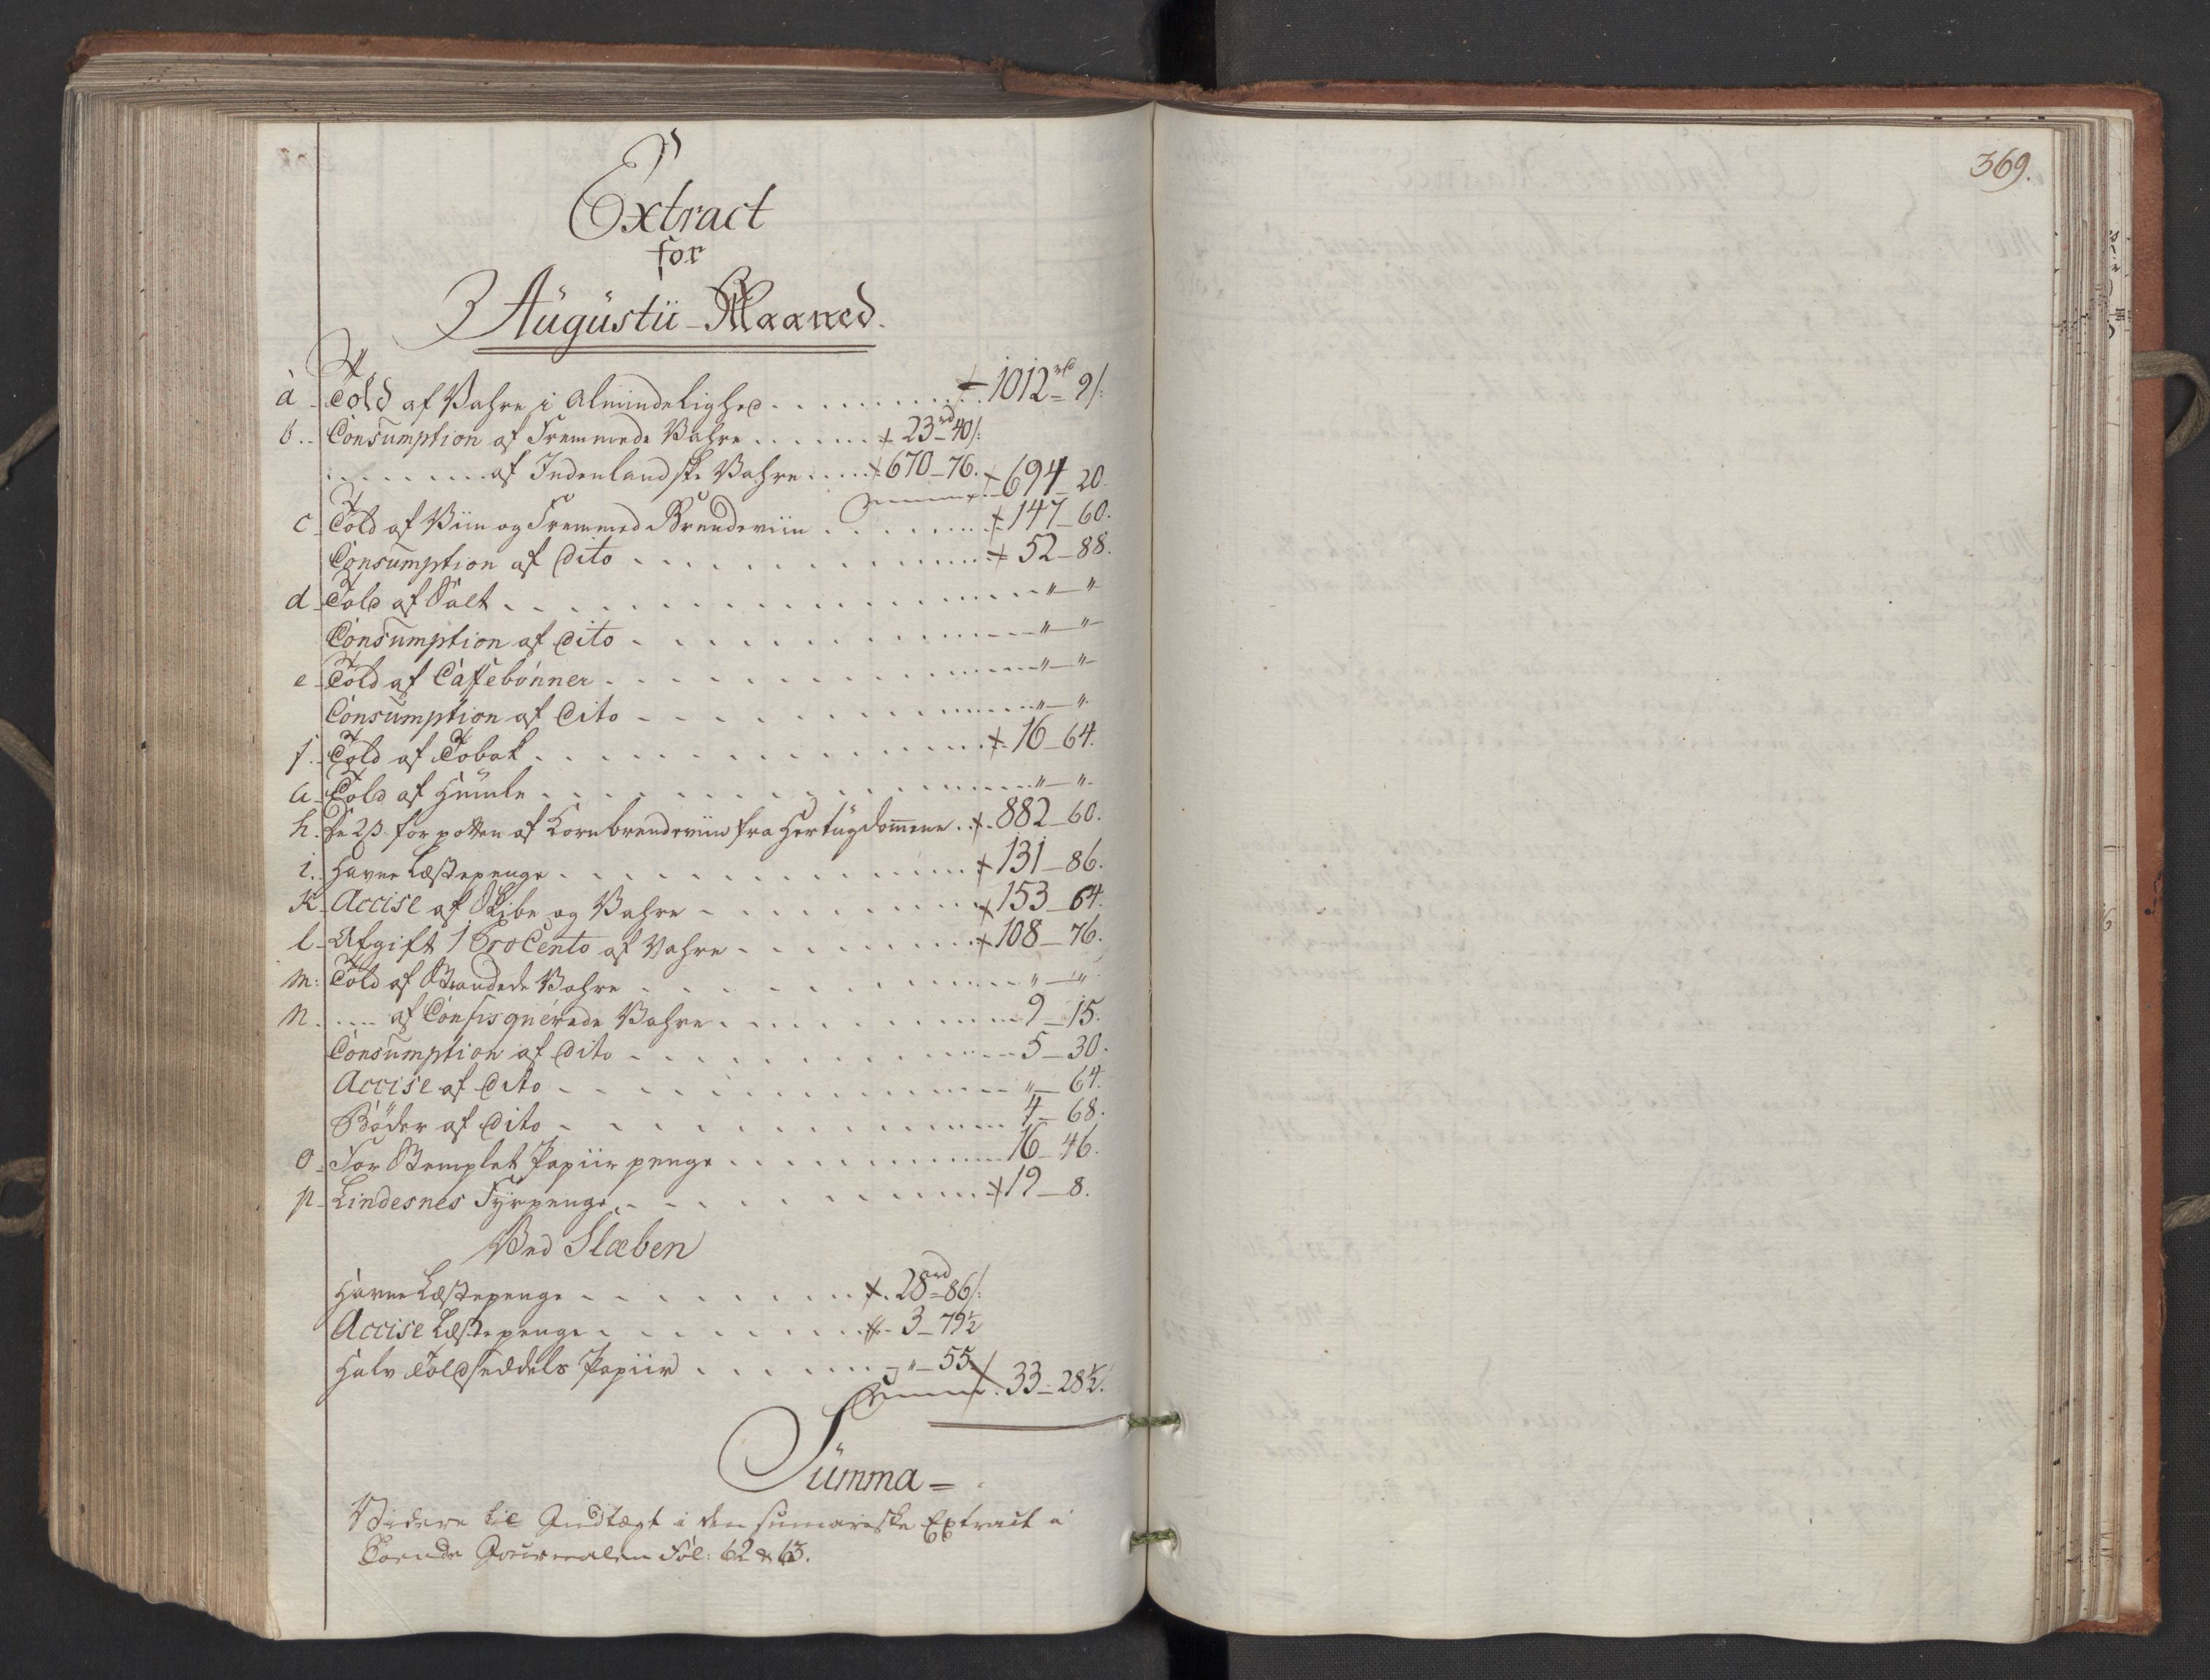 Extract
for
Augustii Maaned.
a Told af Vahre i Almindelighed 1012 rd 9 s:
b Consumption af Fremmede Vahre 23 rd 40 s:
af Indenlandske Vahre 670 - 76. 694 - 20.
c Told af Viin og Fremmed Brendeviin 147 - 60.
Consumption af Dito 52 - 88.
d Told af Salt " - "
Consumption af Dito " - "
e Told af Caffebønner " - "
Consumption af Dito " - "
f Told af Tobak 16 - 64.
G Told af Humle " - "
h. De 2 β for potten af Kornbrendeviin fra Hertugdommene 882 - 60.
i. Havne Læstepenge 131 - 86.
K Accise af Skibe og Vahre 153 - 64.
l Afgift 1 Pro Cento af Vahre 108 - 76.
m: Told af Strandede Vahre " - "
n. af Confisquerede Vahre 9 - 15.
Consumption af Dito 5 - 30.
Accise af Dito " - 64.
Bøder af Dito 4 - 68.
o For Stemplet Papiir penge 16 - 46.
p Lindesnes Fyrpenge 19 - 8.
Ved Slæben
Havne Læstepenge 28 rd 86 s:
Accise Læstepenge 3 - 79½
Halv Toldseddels Papiir " - 55
33 - 28½.
Summa =
Videre til Indtægt i den sumariske Extract a
Journalen Fol: 62 & 63.
369.